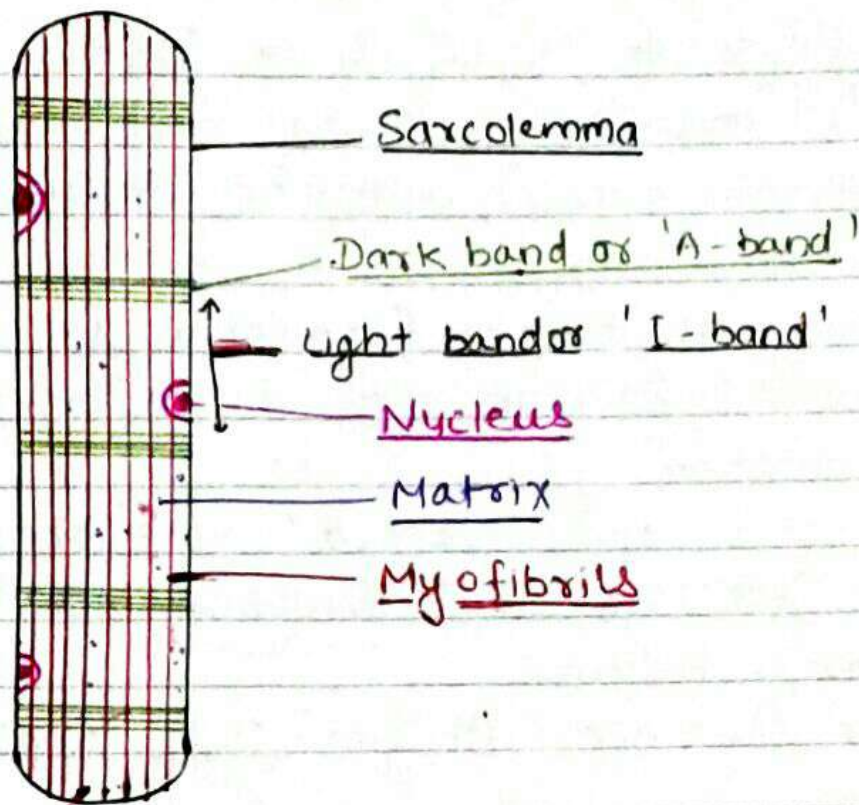 Sarcolemma
Dark band or 'A-band'
Light band or 'I-band'
Nycleus
Matrix
Myofibrils